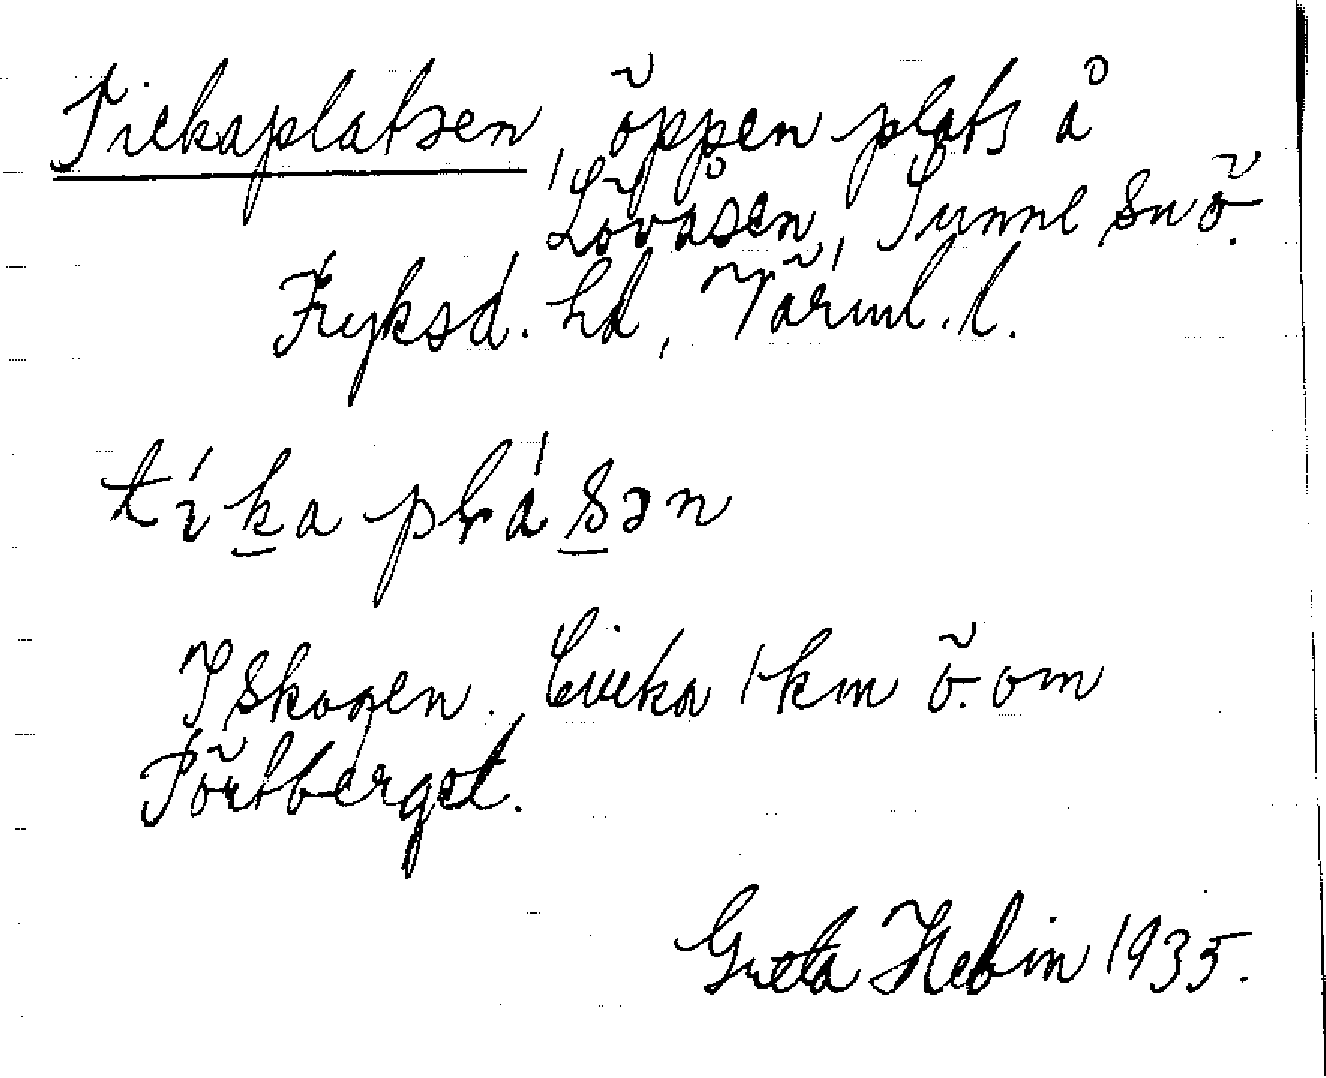 Tickaplatsen, öppen plats å
Lövåsen, Sunne sn ö.
Fryksd. hd, Värml. l.
tíka plásən
I skogen. Cirka 1 km ö. om
Pörtberget.
Greta Hebin 1935.